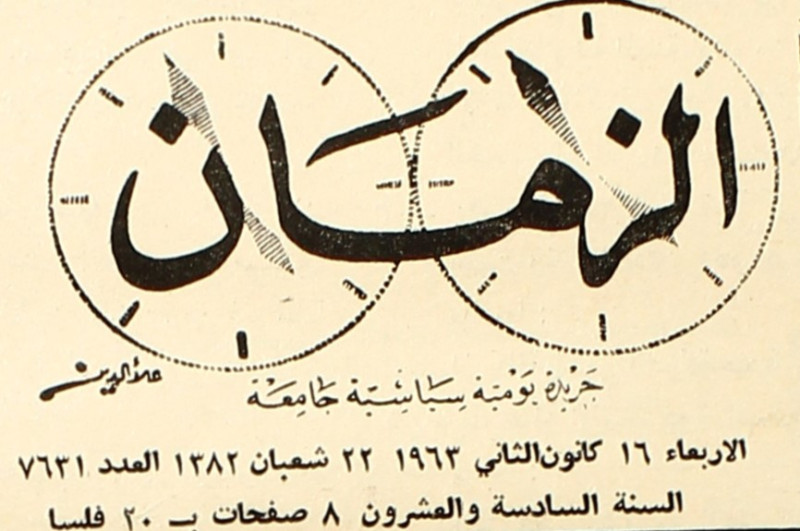 الزمان
علاء الدين
جريدة يومية سياسية جامعة
الاربعاء ١٦ كانون الثاني ١٩٦٣ ٢٢ شعبان ١٣٨٢ العدد ٧٦٣١
السنة السادسة والعشرون ٨ صفحات بـ ٢٠ فلسا